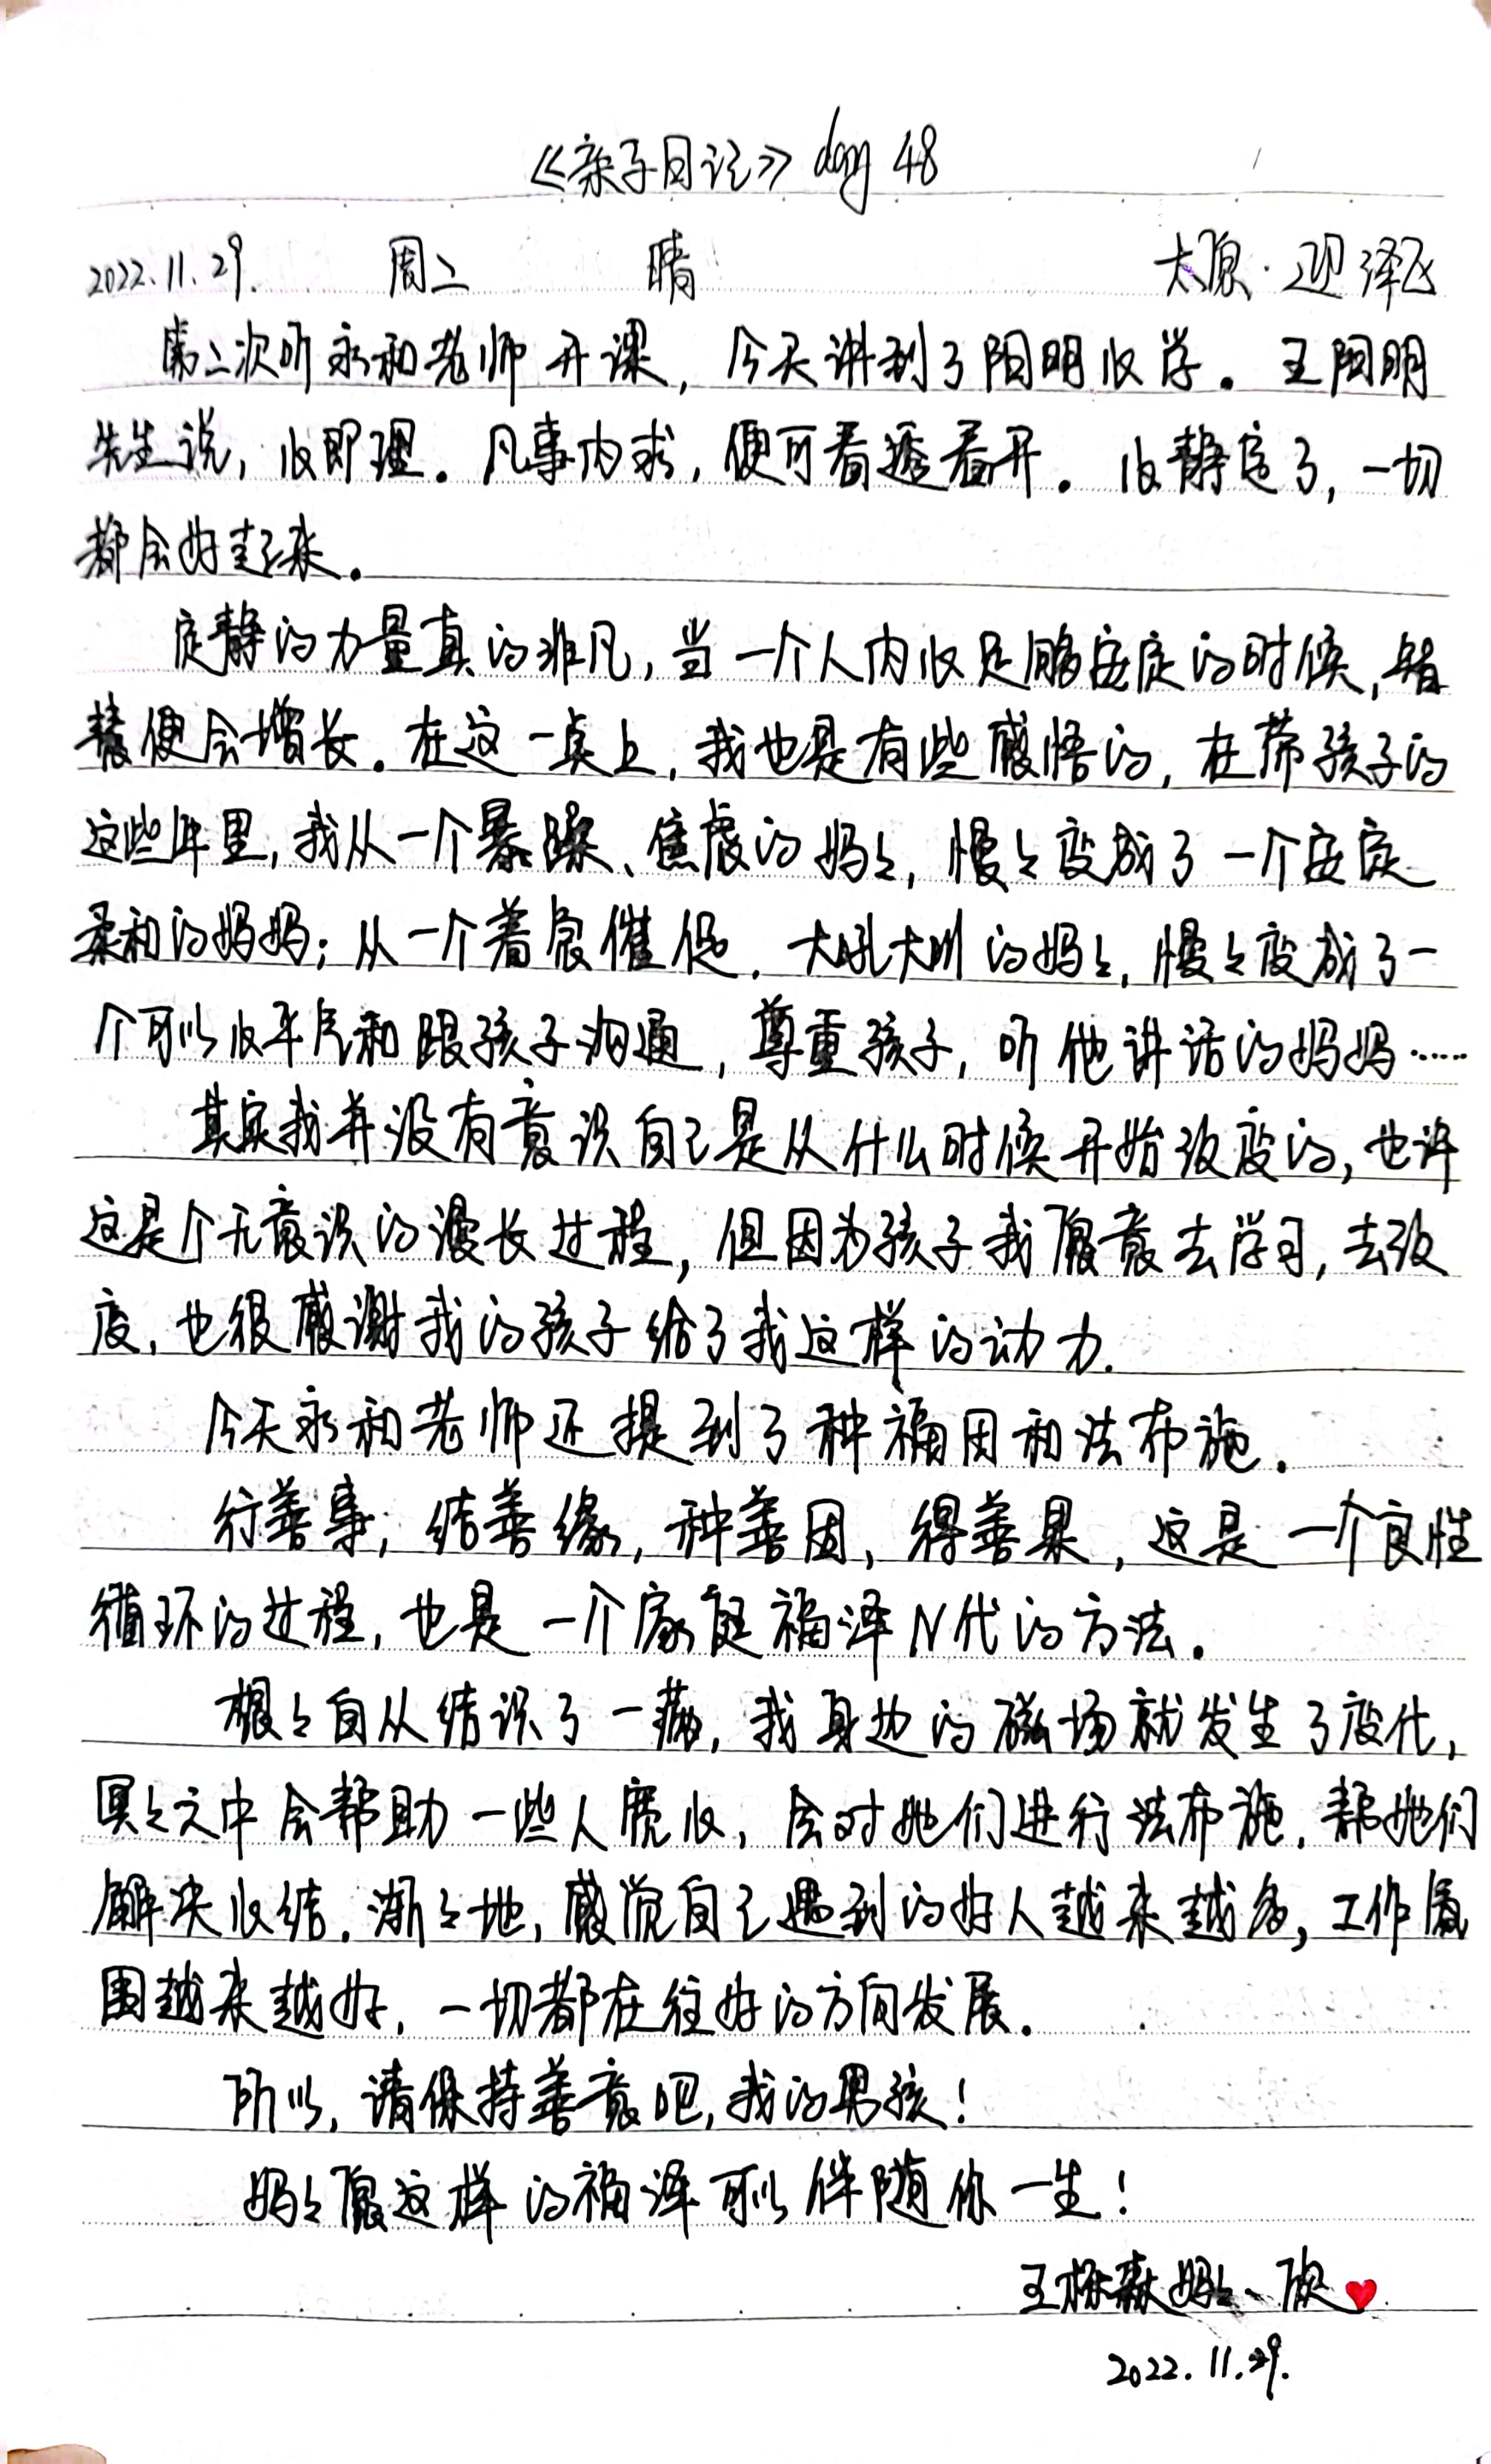 《亲子日记》day 48
2022.11.29. 周二 晴 太原·迎泽区
第二次听永和老师开课，今天讲到了阳明心学。王阳明
先生说，心即理。凡事内求，便可看透看开。心静定了，一切
都会好起来。
定静的力量真的非凡，当一个人内心足够安定的时候，智
慧便会增长。在这一点上，我也是有些感悟的，在带孩子的
这些年里，我从一个暴躁、焦虑的妈々，慢々变成了一个安定
柔和的妈妈；从一个着急催促、大吼大叫的妈々，慢々变成了一
个可以心平气和跟孩子沟通，尊重孩子，听他讲话的妈妈……
其实我并没有意识自己是从什么时候开始改变的，也许
这是个无意识的漫长过程，但因为孩子我愿意去学习，去改
变，也很感谢我的孩子给了我这样的动力.
今天永和老师还提到了种福田和法布施。
行善事，结善缘，种善因，得善果，这是一个良性
循环的过程，也是一个家庭福泽N代的方法。
根々自从结识了一藏，我身边的磁场就发生了变化，
冥々之中会帮助一些人宽心，会对她们进行法布施，帮她们
解决心结，渐々地，感觉自己遇到的好人越来越多，工作氛
围越来越好，一切都在往好的方向发展。
所以，请保持善意吧，我的男孩！
妈々愿这样的福泽可以伴随你一生！
王栎森妈々、欣
2022.11.29.